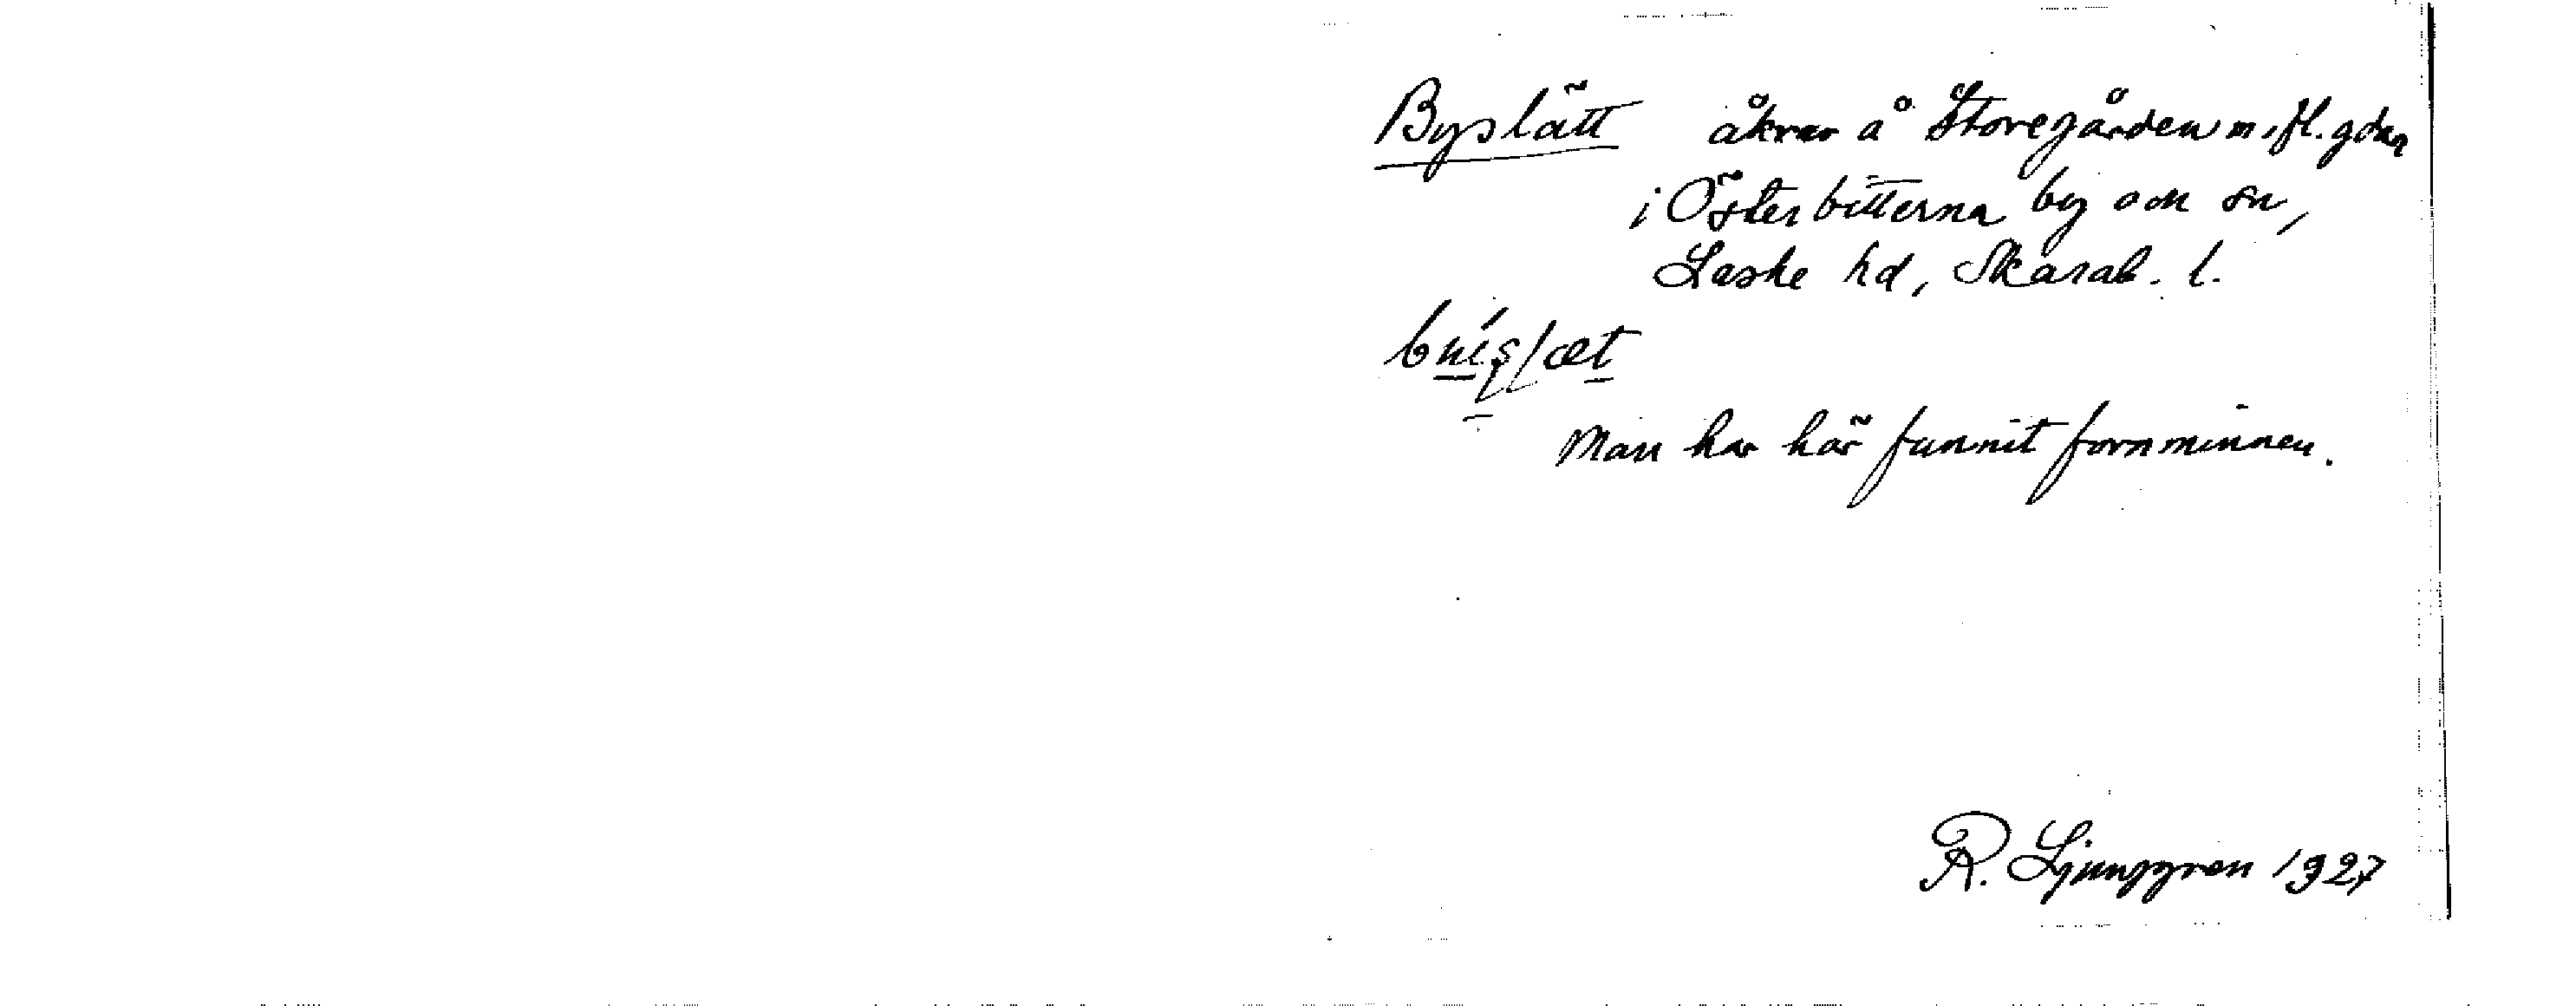 Byslätt åkrar å Storegården m.fl. gdar
i Österbitterna by och sn,
Laske hd, Skarab. l.
Man har här funnit fornminnen.
R. Ljunggren 1927